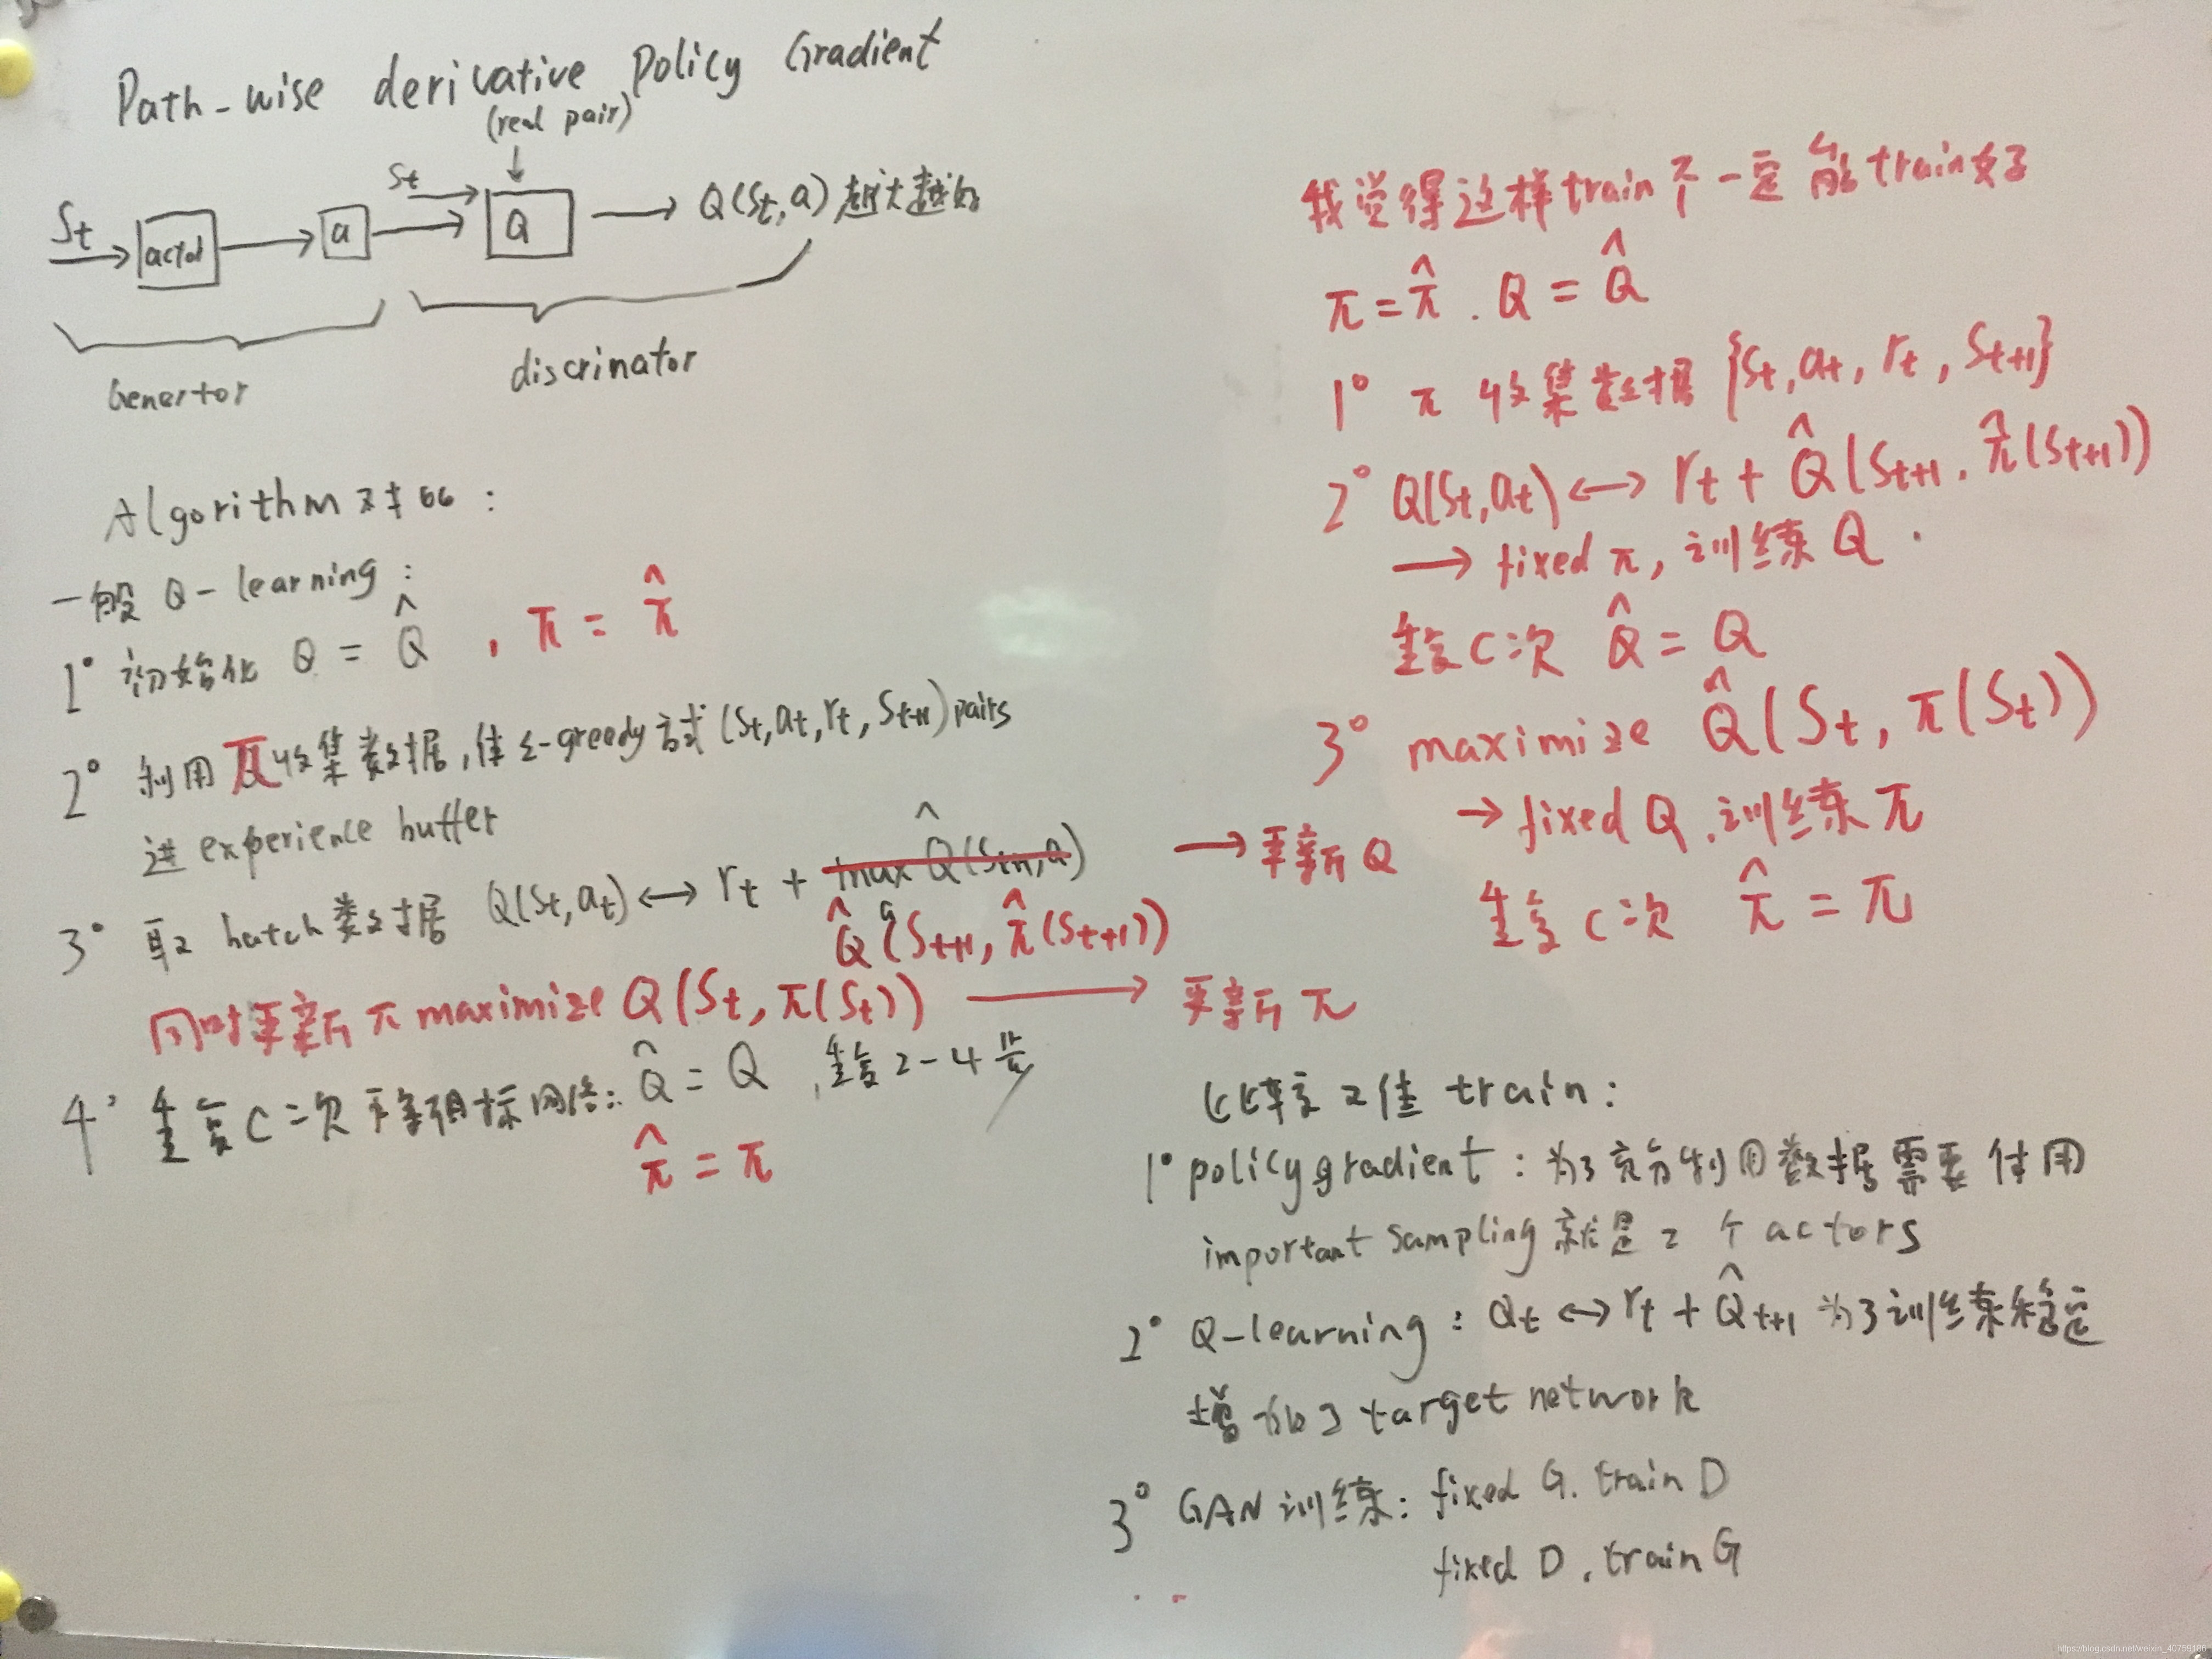 Path-wise derivative Policy Gradient
(real pair)
St
St
actor
a
Q
Q(St,a)越大越好
Genertor
discrinator
Algorithm 对比:
一般 Q-learning:
1° 初始化 Q = Q̂ , π = π̂
2° 利用π收集数据,使ε-greedy方式(St,at,rt,St+1)pairs
进 experience buffer
3° 取 batch数据 Q(St,at) ↔ rt + max Q̂(St+1,a)
a
Q̂(St+1,π̂(St+1))
→更新Q
同时更新π maximize Q(St,π(St)) → 更新π
4° 重复C次 更新目标网络: Q̂ = Q ,重复2-4步
π̂ = π
我觉得这样train不一定能train好
π=π̂ . Q = Q̂
1° π 收集数据 {St,at,rt,St+1}
2° Q(St,at) ↔ rt + Q̂(St+1.π̂(St+1))
→ fixed π,训练Q.
重复C次 Q̂ = Q
3° maximize Q̂(St,π(St))
→fixed Q.训练π
重复C次 π̂ = π
比较 2 train:
1° policy gradient:为了充分利用数据需要使用
important sampling 就是2个actors
2° Q-learning: Qt ↔ rt + Q̂t+1 为了训练稳定
增加了target network
3° GAN训练: fixed G. train D
fixed D. train G
https://blog.csdn.net/weixin_40759186